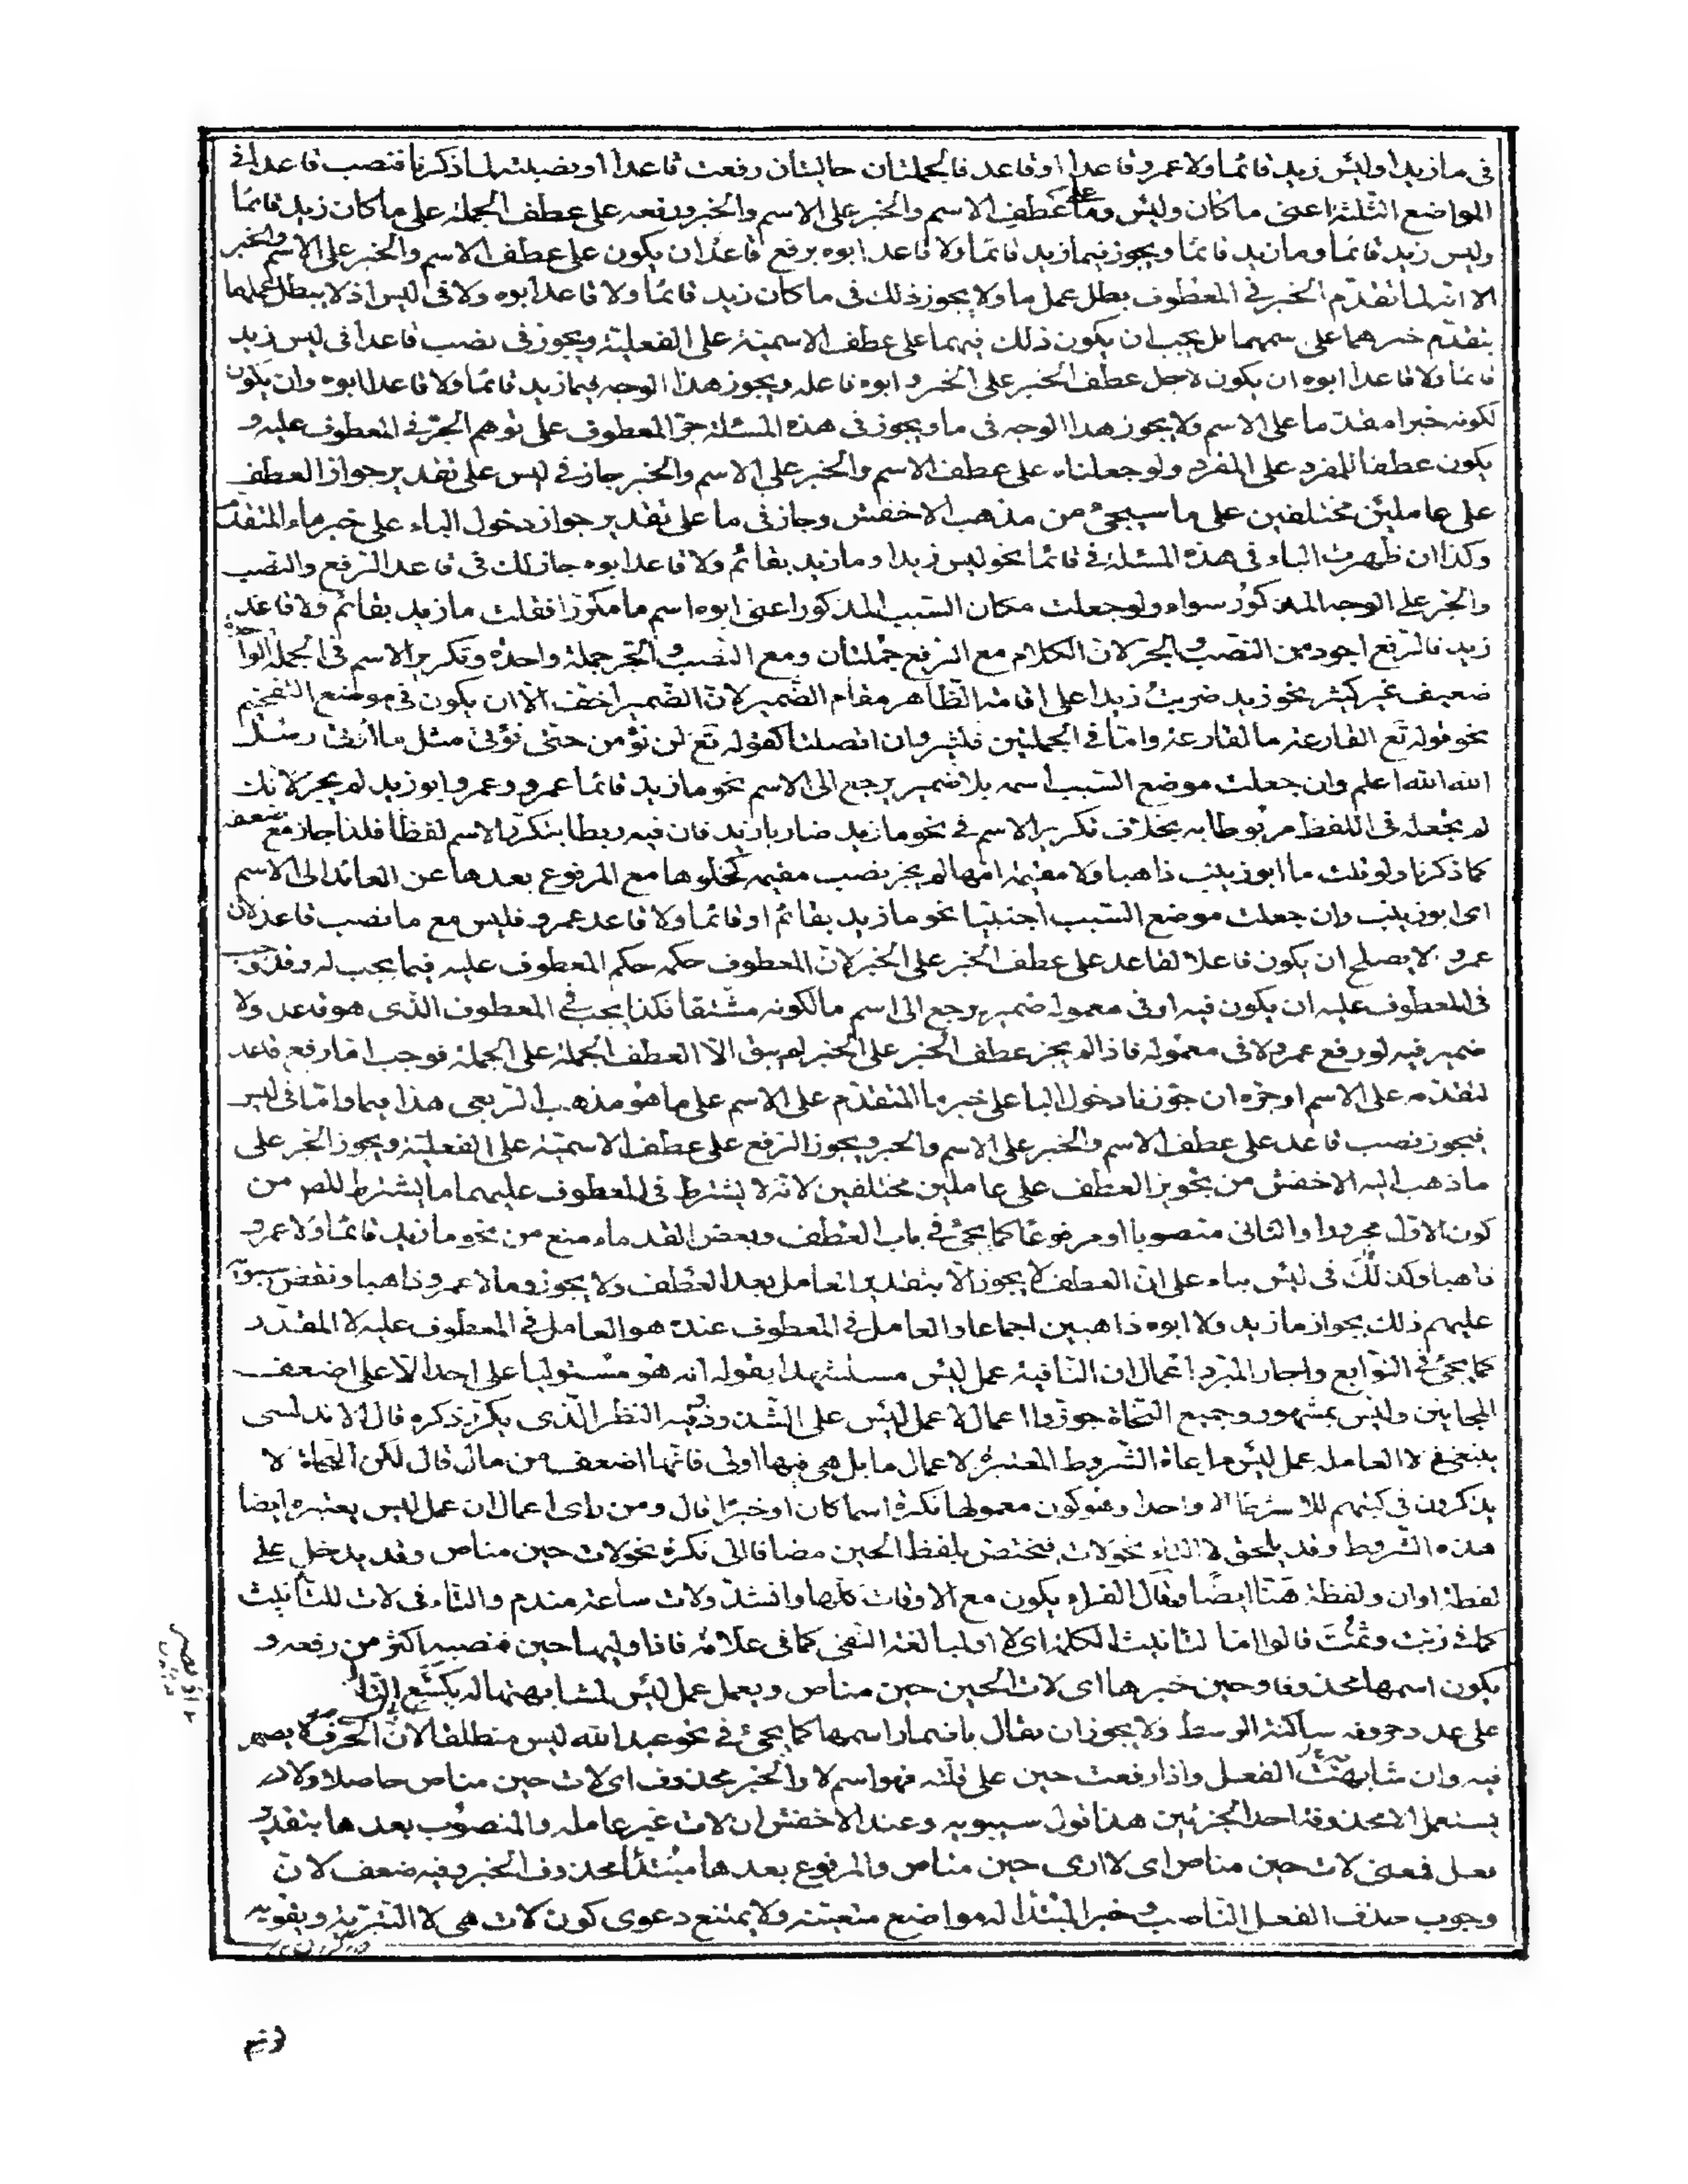 فى ما زيد اوليس زيد قائما ولا عمرو قاعدا او قاعد فالجملتان حاليتان رفعت قاعدا او نصبته لما ذكرنا فتنصب قاعدا فى
المواضع الثلثة اعنى ما كان وليس وما على عطف الاسم والخبر على الاسم والخبر ورفعه على عطف الجملة على ما كان زيد قائما
وليس زيد قائما وما زيد قائما ويجوز فيما زيد قائما ولا قاعد ابوه برفع قاعد ان يكون على عطف الاسم والخبر على الاسم والخبر
الا انه لما تقدم الخبر فى المعطوف بطل عمل ما ولا يجوز ذلك فى ما كان زيد قائما ولا قاعد ابوه ولا فى ليس اذ لا يبطل عملهما
بتقدم خبرهما على سمهما بل يجب ان يكون ذلك فيهما على عطف الاسمية على الفعلية ويجوز فى نصب قاعدا فى ليس زيد
قائما ولا قاعدا ابوه ان يكون لاجل عطف الخبر على الخبر وابوه فاعله ويجوز هذا الوجه فيما زيد قائما ولا قاعدا ابوه وان يكون
لكونه خبرا مقدما على الاسم ولا يجوز هذا الوجه فى ما ويجوز فى هذه المسئلة جر المعطوف على توهم الجر فى المعطوف عليه و
يكون عطفا للمفرد على المفرد ولو جعلناه على عطف الاسم والخبر على الاسم والخبر جاز فى ليس على تقدير جواز العطف
على عاملين مختلفين على ما سيجئ من مذهب الاخفش وجاز فى ما على تقدير جواز دخول الباء على خبر ماء المتقدم
وكذا ان ظهرت الباء فى هذه المسئلة فى قائما نحو ليس زيد او ما زيد بقائم ولا قاعد ابوه جاز لك فى قاعد الرفع والنصب
والجر على الوجه المذكور سواء ولو جعلت مكان السبب المذكور اعنى ابوه اسم ما مكررا فقلت ما زيد بقائم ولا قاعد
زيد فالرفع اجود من النصب والجر لان الكلام مع الرفع جملتان ومع النصب والجر جملة واحدة وتكرير الاسم فى الجملة الواحدة
ضعيف غير كثير نحو زيد ضربت زيدا على اقامة الظاهر مقام الضمير لان الضمير اخف الا ان يكون فى موضع التفخيم
نحو قوله تع القارعة ما القارعة واما فى الجملتين فكثير وان اتصلتا كقوله تع لن نؤمن حتى نؤتى مثل ما اوتى رسل
الله الله اعلم وان جعلت موضع السبب اسمه بلا ضمير يرجع الى الاسم نحو ما زيد قائما عمرو وعمرو ابو زيد لم يجز لانك
لم تجعله فى اللفظ مربوطا به بخلاف تكرير الاسم فى نحو ما زيد ضاربا زيد فان فيه ربطا بتكرر الاسم لفظا فلذا جاز مع ضعفه
كما ذكرنا ولو قلت ما ابو زينب ذاهبا ولا مقيمة امها لم يجز نصب مقيمة لخلوها مع المرفوع بعدها عن العائد الى الاسم
اى ابو زينب وان جعلت موضع السبب اجنبيا نحو ما زيد بقائم او قائما ولا قاعد عمرو فليس مع ما نصب قاعد لان
عمرو لا يصلح ان يكون فاعلا لقاعد على عطف الخبر على الخبر لان المعطوف حكمه حكم المعطوف عليه فيما يجب له وقد وجب
فى المعطوف عليه ان يكون فيه او فى معموله ضمير يرجع الى اسم ما لكونه مشتقا فكذا يجب فى المعطوف الذى هو قاعد ولا
ضمير فيه لو رفع عمرو ولا فى معموله فاذا لم يجز عطف الخبر على الخبر لم يبق الا العطف الجملة على الجملة فوجب اما رفع قاعد
لتقدمه على الاسم او جره ان جوزنا دخول الباء على خبر ما المتقدم على الاسم على ما هو مذهب الربعى هذا فيما واما فى ليس
فيجوز نصب قاعد على عطف الاسم والخبر على الاسم والخبر ويجوز الرفع على عطف الاسمية على الفعلية ويجوز الجر على
ما ذهب اليه الاخفش من تجويز العطف على عاملين مختلفين لانه لا يشترط فى المعطوف عليهما ما يشترط للمصر من
كون الاول مجرورا والثانى منصوبا او مرفوعا كما يجئ فى باب العطف وبعض القدماء منع من نحو ما زيد قائما ولا عمرو
ذاهبا وكذلك فى ليس بناء على ان العطف لا يجوز الا بتقدير العامل بعد العطف ولا يجوز وما لا عمرو ذاهبا ونقض سيبويه
عليهم ذلك بجواز ما زيد ولا ابوه ذاهبين اجماعا والعامل فى المعطوف عنده هو العامل فى المعطوف عليه لا المقدر
كما يجئ فى التوابع واجاز المبرد اعمال ان النافية عمل ليس مستشهدا بقوله انه هو مستوليا على احد الا على اضعف
المجانين وليس بمشهور وجميع النحاة جوزوا اعمال لا عمل ليس على الشذوذ وفيه النظر الذى يكرر ذكره قال الاندلسى
ينبغى فى لا العامل عمل ليس مراعاة الشروط المعتبرة لاعمال ما بل هى فيها اولى فانها اضعف من ما قال لكن النحاة لا
يذكرون فى كتبهم للا شرطا الا واحدا وهو كون معمولها نكرة اسما كان او خبرا قال ومن راى اعمال ان عمل ليس يعتبره ايضا
هذه الشروط وقد يلحق لا التاء نحو لات فيختص بلفظ الحين مضافا الى نكرة نحو لات حين مناص وقد يدخل على
لفظة اوان ولفظة هنا ايضا وقال الفراء يكون مع الاوقات كلها وانشد ولات ساعة مندم والتاء فى لات للتانيث
كما فى ربت وثمت قالوا اما لتانيث الكلمة اى لا او لمبالغة النفى كما فى علامة فاذا وليها حين فنصبه اكثر من رفعه و
يكون اسمها محذوفا وحين خبرها اى لات الحين حين مناص ويعمل عمل ليس لمشابهتها له بكسع التاء
على عدد حروفه ساكنة الوسط ولا يجوز ان يقال باضمار اسمها كما يجئ فى نحو عبد الله ليس منطلقا لان الحرف لا يضمر
فيه وان شابهت الفعل واذا رفعت حين على قلته فهو اسم لا والخبر محذوف اى لات حين مناص حاصلا ولا
يستعمل الا محذوفة احد الجزئين هذا قول سيبويه وعند الاخفش ان لات غير عاملة والمنصوب بعدها بتقدير
فعل فمعنى لات حين مناص اى لا ارى حين مناص والمرفوع بعدها مبتدأ محذوف الخبر وفيه ضعف لان
وجوب حذف الفعل الناصب وخبر المبتدأ له مواضع متعينة ولا يمتنع دعوى كون لات هى لا التبرية ويقويه